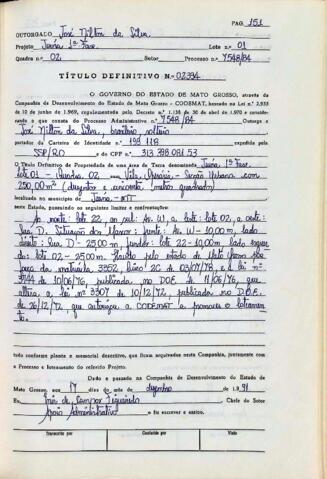 PAG 151
OUTORGADO José Nilton da Silva
Projeto Juína 1ª Fase. Lote n.º 01
Quadra n.º 02. Processo n.º 7548/84
TÍTULO DEFINITIVO N.º 02394
O GOVERNO DO ESTADO DE MATO GROSSO, através da
Companhia de Desenvolvimento do Estado de Mato Grosso - CODEMAT, baseado na Lei n.º 2.933
de 10 de junho de 1969, regulamentada pelo Decreto n.º 1.138 de 30 de abril de 1970 e considerando
o que consta do Processo Administrativo n.º 7548/84 Outorga a
José Nilton da Silva, brasileiro, solteiro
portador da Carteira de Identidade n.º 192 118 expedida pela
SSP/RO e de CPF n.º 313 798 081 53
O Título Definitivo de Propriedade de uma área de Terra denominada Juína, 1ª Fase.
lote 01 - Quadra 02 Vila Seção Urbana com
250,00 m² (duzentos e cinquenta metros quadrados)
localizada no município de Juína - MT
neste Estado, possuindo os seguintes limites e confrontações:
ao norte: lote 22, ao sul: Av. W, a leste: lote 02, a oeste:
Rua D. frente: Av. W - 10,00 m, lado
direito: Rua D - 25,00 m, fundos: lote 22 - 10,00 m, lado esquer
do: lote 02 - 25,00 m. pelo estado de Mato Grosso
da matrícula 3362, livro 2C de 03/07/78, e a lei nº
3744 de 10/06/76, publicada no DOE de 11/06/76, que
altera a lei nº 3307 de 10/12/72, publicada no D.O.E.
de 26/12/72, que autoriza a CODEMAT a promover o loteamen
to.
tudo conforme planta e memorial descritivo, que ficam arquivados nesta Companhia, juntamente com
o Processo e Intemamento do referido Projeto.
Dado e passado na Companhia de Desenvolvimento do Estado de
Mato Grosso, aos 17 dias do mês de dezembro de 1.991
Eu, de Campos Figueiredo Chefe do Setor
Apoio Administrativo o Eu escrever e assino.
Transcrito por Conferido por Visto